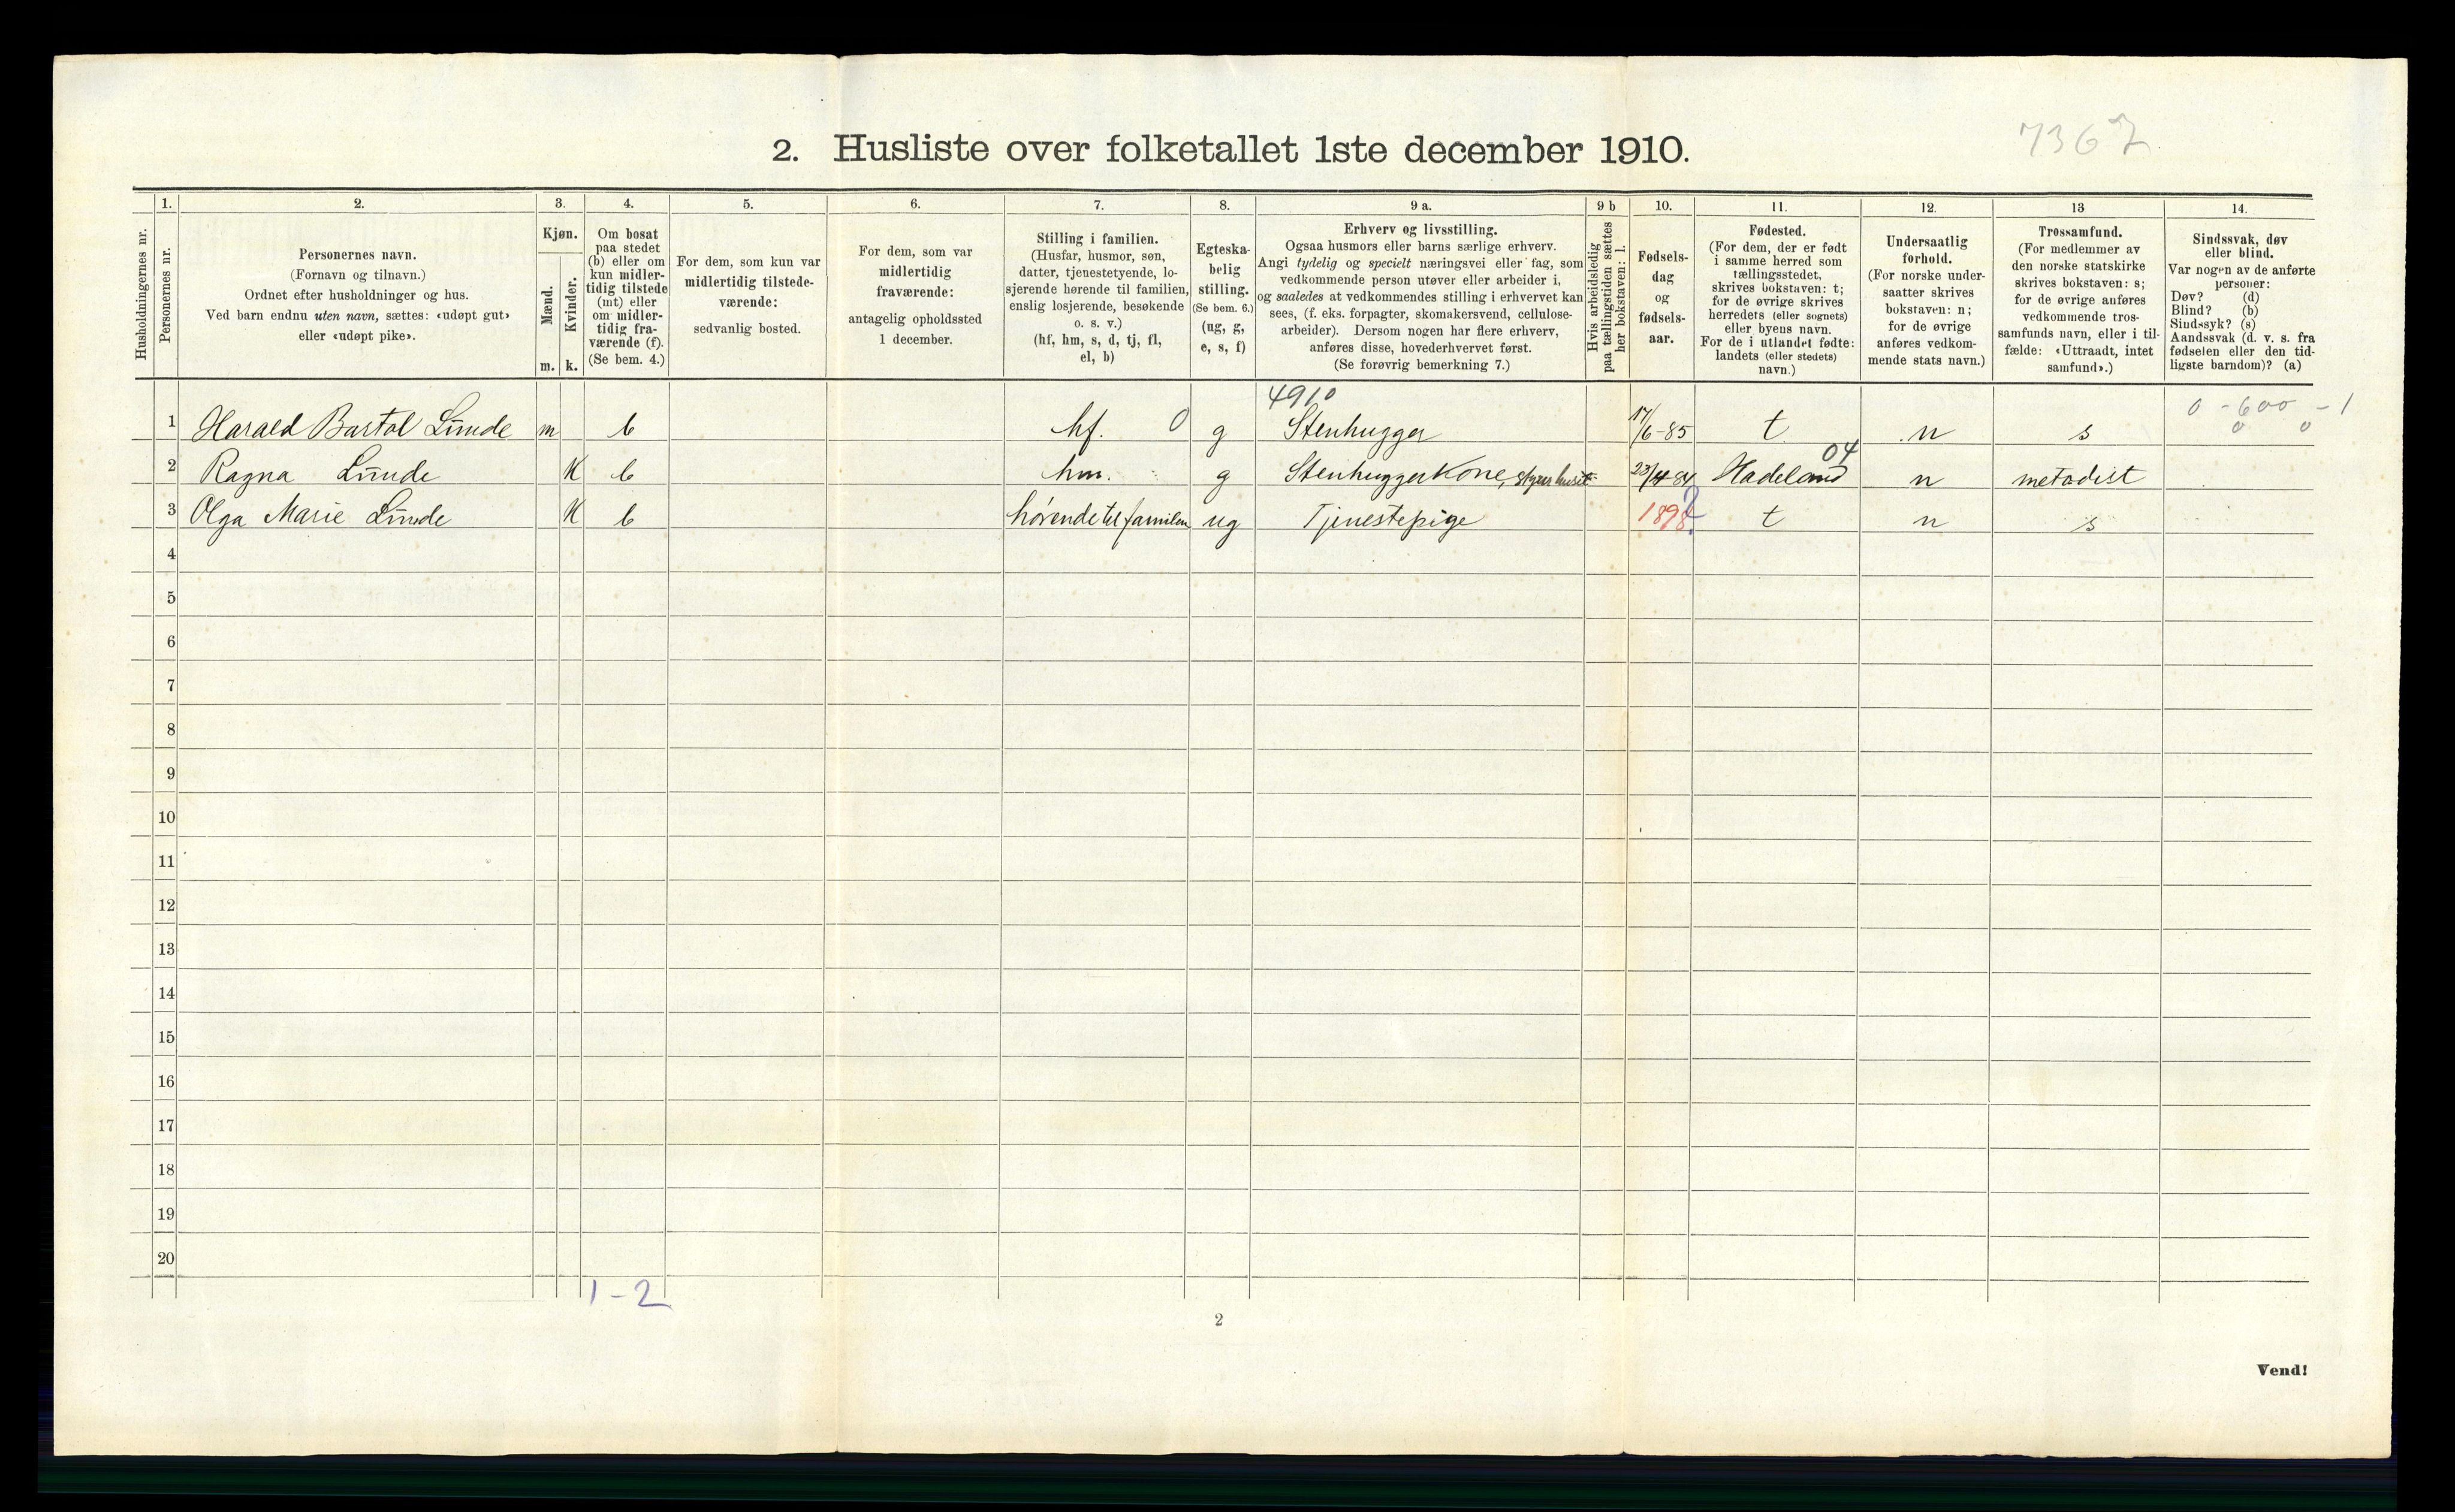 2. Husliste over folketallet 1ste december 1910.
7367
Husholdningernes nr.
1.
Personernes nr.
2.
Personernes navn.
(Fornavn og tilnavn.)
Ordnet efter husholdninger og hus.
Ved barn endnu uten navn, sættes: «udøpt gut»
eller «udøpt pike».
3.
Kjøn.
Mænd.
m.
Kvinder.
k.
4.
Om bosat
paa stedet
(b) eller om
kun midler-
tidig tilstede
(mt) eller
om midler-
tidig fra-
værende (f).
(Se bem. 4.)
5.
For dem, som kun var
midlertidig tilstede-
værende:
sedvanlig bosted.
6.
For dem, som var
midlertidig
fraværende:
antagelig opholdssted
1 december.
7.
Stilling i familien.
(Husfar, husmor, søn,
datter, tjenestetyende, lo-
sjerende hørende til familien,
enslig losjerende, besøkende
o. s. v.)
(hf, hm, s, d, tj, fl,
el, b)
8.
Egteska-
belig
stilling.
(Se bem. 6.)
(ug, g,
e, s, f)
9 a.
Erhverv og livsstilling.
Ogsaa husmors eller barns særlige erhverv.
Angi tydelig og specielt næringsvei eller fag, som
vedkommende person utøver eller arbeider i,
og saaledes at vedkommendes stilling i erhvervet kan
sees, (f. eks. forpagter, skomakersvend, cellulose-
arbeider). Dersom nogen har flere erhverv,
anføres disse, hovederhvervet først.
(Se forøvrig bemerkning 7.)
9 b
Hvis arbeidsledig
paa tællingstiden sættes
her bokstaven: l.
10.
Fødsels-
dag
og
fødsels-
aar.
11.
Fødested.
(For dem, der er født
i samme herred som
tællingsstedet,
skrives bokstaven: t;
for de øvrige skrives
herredets (eller sognets)
eller byens navn.
For de i utlandet fødte:
landets (eller stedets)
navn.)
12.
Undersaatlig
forhold.
(For norske under-
saatter skrives
bokstaven: n;
for de øvrige
anføres vedkom-
mende stats navn.)
13
Trossamfund.
(For medlemmer av
den norske statskirke
skrives bokstaven: s;
for de øvrige anføres
vedkommende tros-
samfunds navn, eller i til-
fælde: «Uttraadt, intet
samfund».)
14.
Sindssvak, døv
eller blind.
Var nogen av de anførte
personer:
Døv? (d)
Blind? (b)
Sindssyk? (s)
Aandssvak (d. v. s. fra
fødselen eller den tid-
ligste barndom)? (a)
4910
0 - 600 - 1
1 Harald Bastol Lunde m b hf. 0 g Stenhugger 17/6-85 t n s 0 0
04
2 Ragna Lunde K b hm. g Stenhuggerkone, styrer huset 23/4-84 Hadeland n metodist
3 Olga Marie Lunde K b hörende til familien ug Tjenestepige 1898 ? t n s
4
5
6
7
8
9
10
11
12
13
14
15
16
17
18
19
20
1-2
2
Vend!